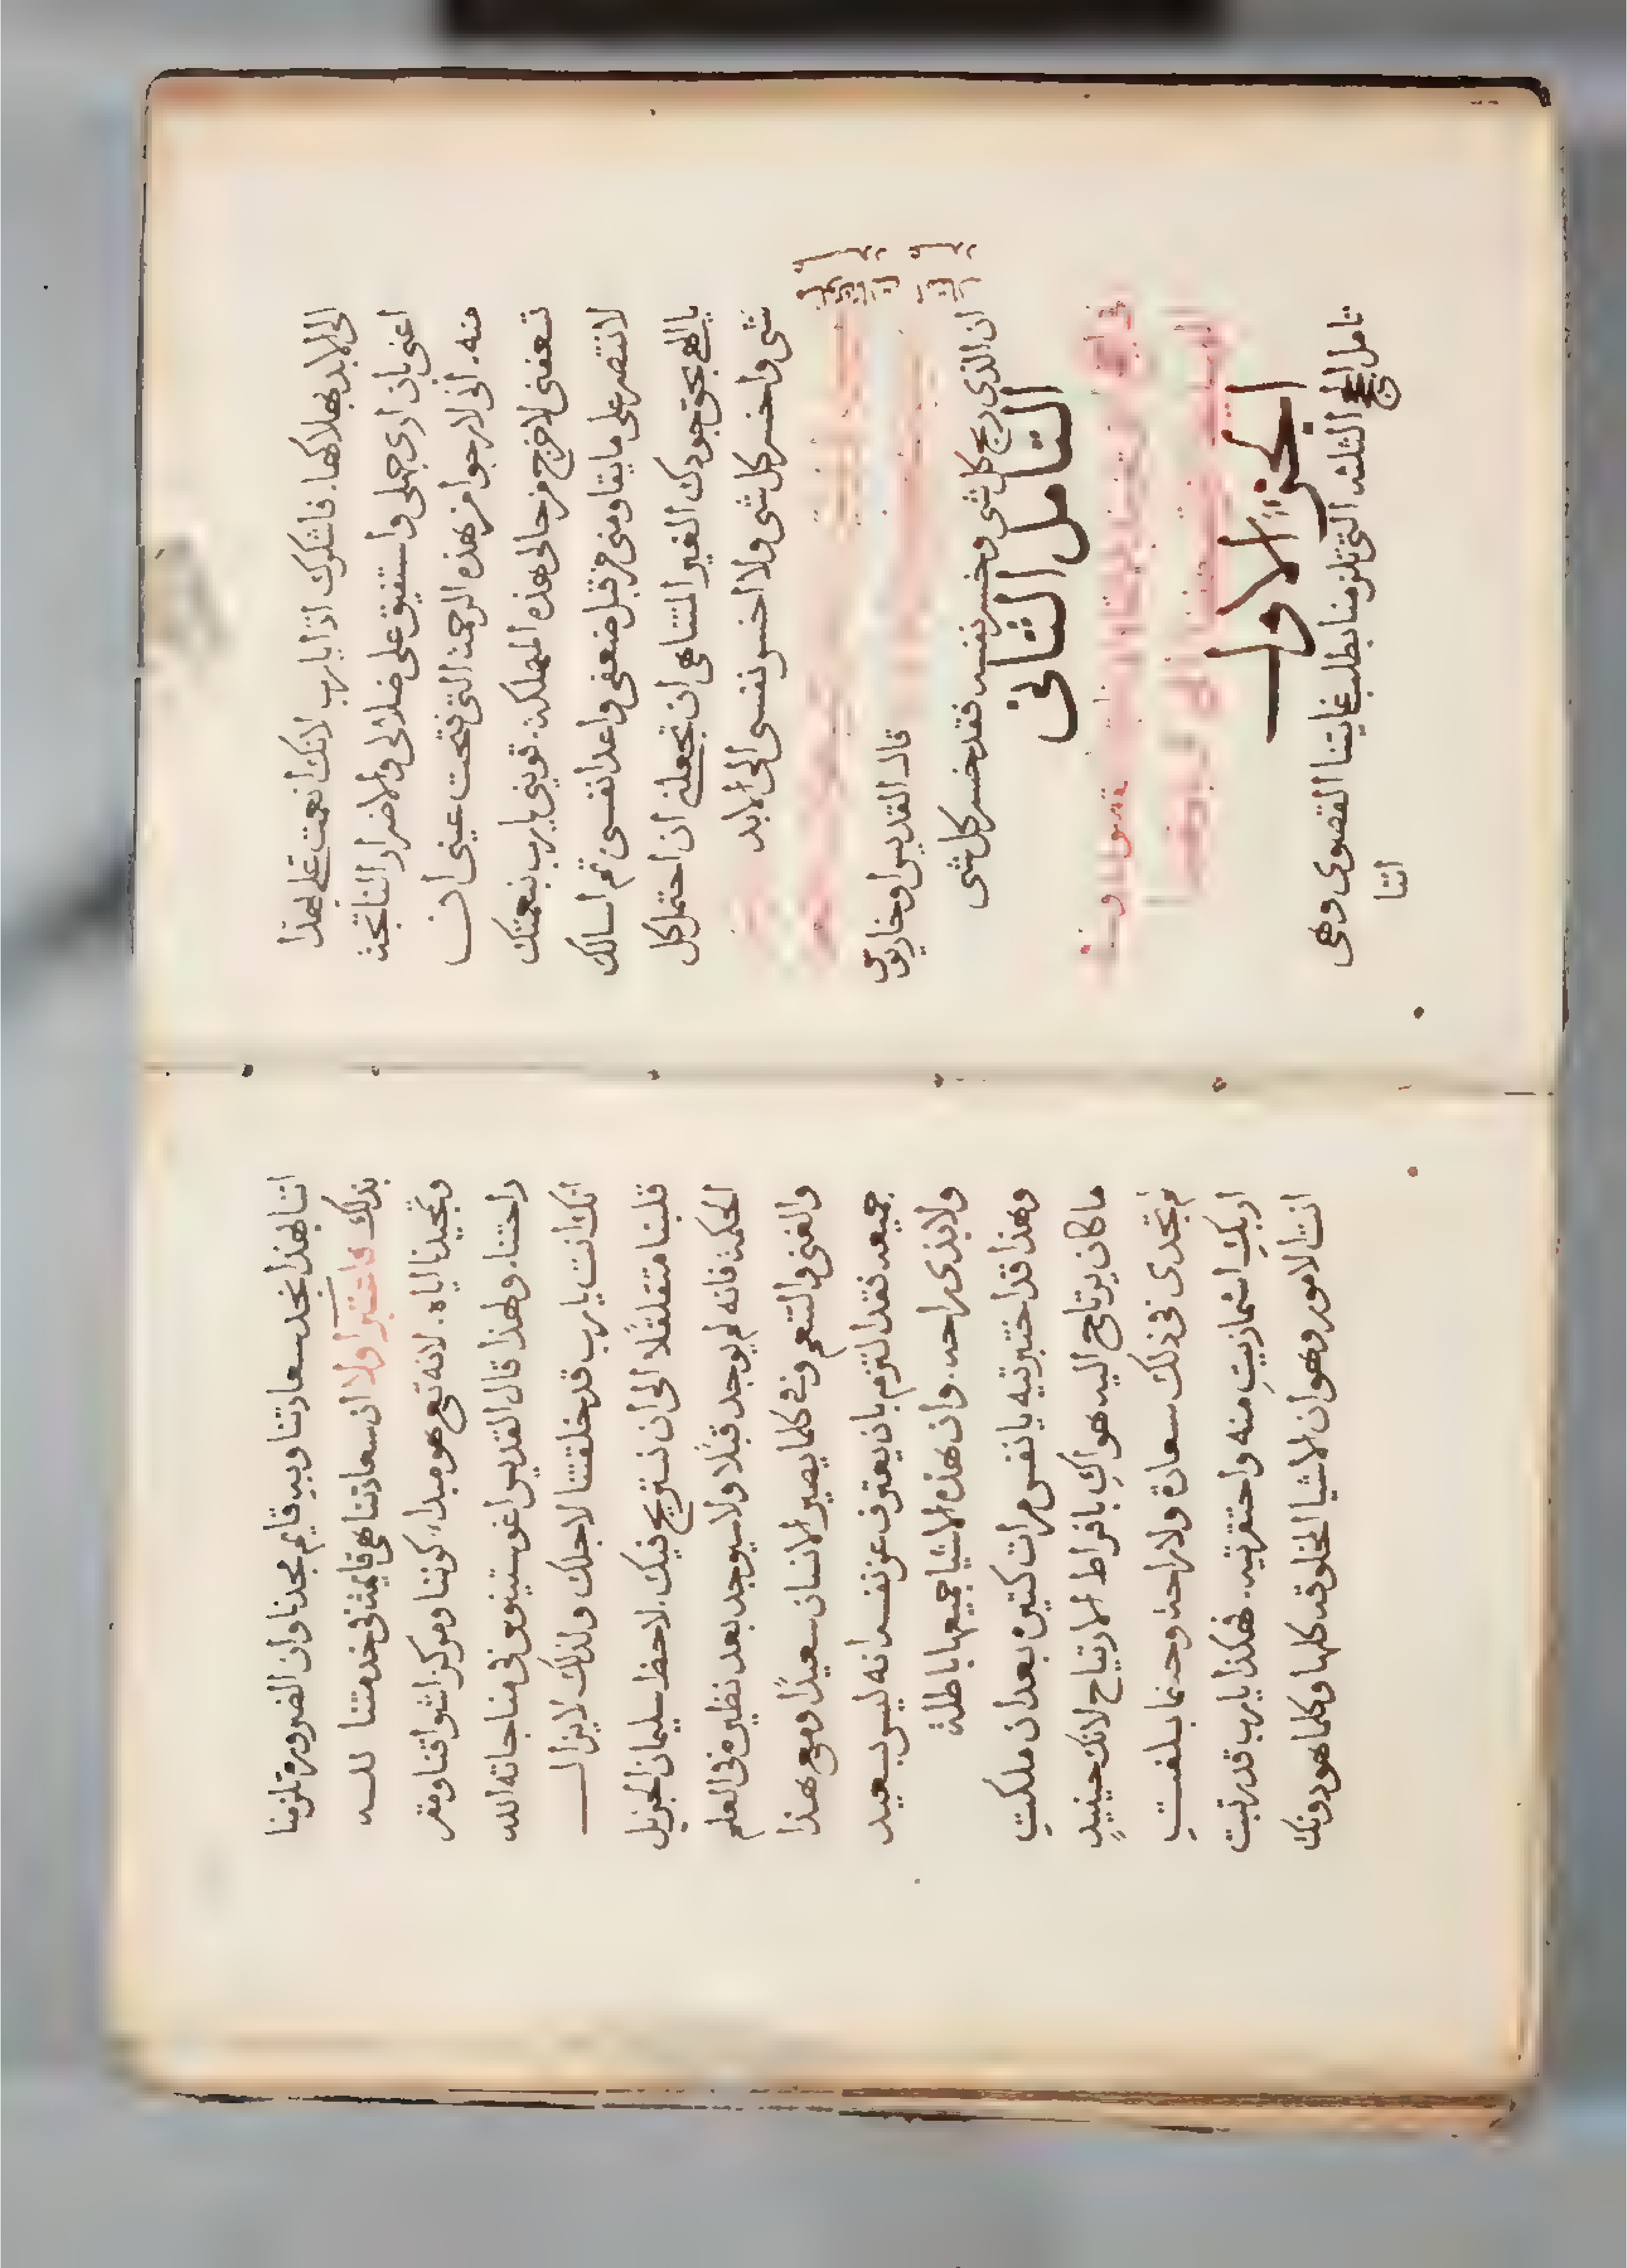 الى الابد بهلاكها. فاشكرك اذًا يارب لانك انعمت علي بهذا
اعني بان ارى جهلي واستفيق على ضلالي والاضرار الناتجة
منه. اني لارجوا من هذه الرحمة التي فتحت عيني ان
تعفني لاخرج من حالي هذه المهلكة. قويني يارب بنعمتك
لانتصر على ما يقاومني من قبل ضعفي واعدا نفسي ثم اسالك
يا الهي بحق جودك الغير المتناهي ان تجعلني ان احتمل كل
شي واخسر كل شي ولا اخسر نفسي الى الابد
قال القديس اوخاريوس
ان الذي ربح كل شي وخسر نفسه فقد خسر كل شي
التامل الثاني
الجزء الاول
تامل الثلثه التي تلزمنا بطلب غايتنا القصوى وهي
اننا
اننا بهذا نجد سعادتنا وبه قايم مجدنا وان الضروره تلزمنا
بذلك فاعتبر اولا ان سعادتنا هي قايمة في خدمتنا لله
وتمجيدنا اياه. لانه تع هو مبداء كوننا ومركز اشواقنا ومقر
راحتنا. ولهذا قال القديس اغوستينوس في مناجاته الله
انك انت يارب قد خلقتنا لاجلك ولذلك لا يزال
قلبنا متقلقلًا الى ان نستريح فيك. لاحظ سليمان الجزيل
الحكمة فانه لم يوجد قبلًا ولا سيوجد بعد نظيره في العلم
والغنى والتنعم وفي كلما يصير الانسان سعيدًا ومع هذا
جميعه فقد التزم بان يعترف عن نفسه انه ليس بسعيد
ولا بذي راحه. وان هذه الاشيا جميعها باطلة
وهذا قد اختبرتيه يا نفس مرات كتيرة بعد ان ملكتِ
ما كان يرتاح اليه هواكِ بافراط الارتياح لانك حينيذٍ
لم تجدى في ذلك سعادة ولا راحة وحينما بلغتِ
اربكِ اشمازيتِ منه واحتقرتيه. فهكذا يارب قد رتبت
انت الامور وهو ان الاشيا المخلوقه كلها وكلما هو دونك